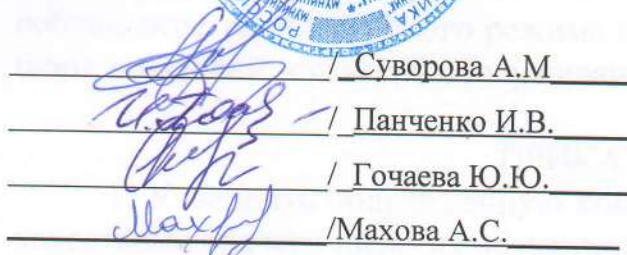 / Суворова А.М
/ Панченко И.В.
/ Гочаева Ю.Ю.
/Махова А.С.